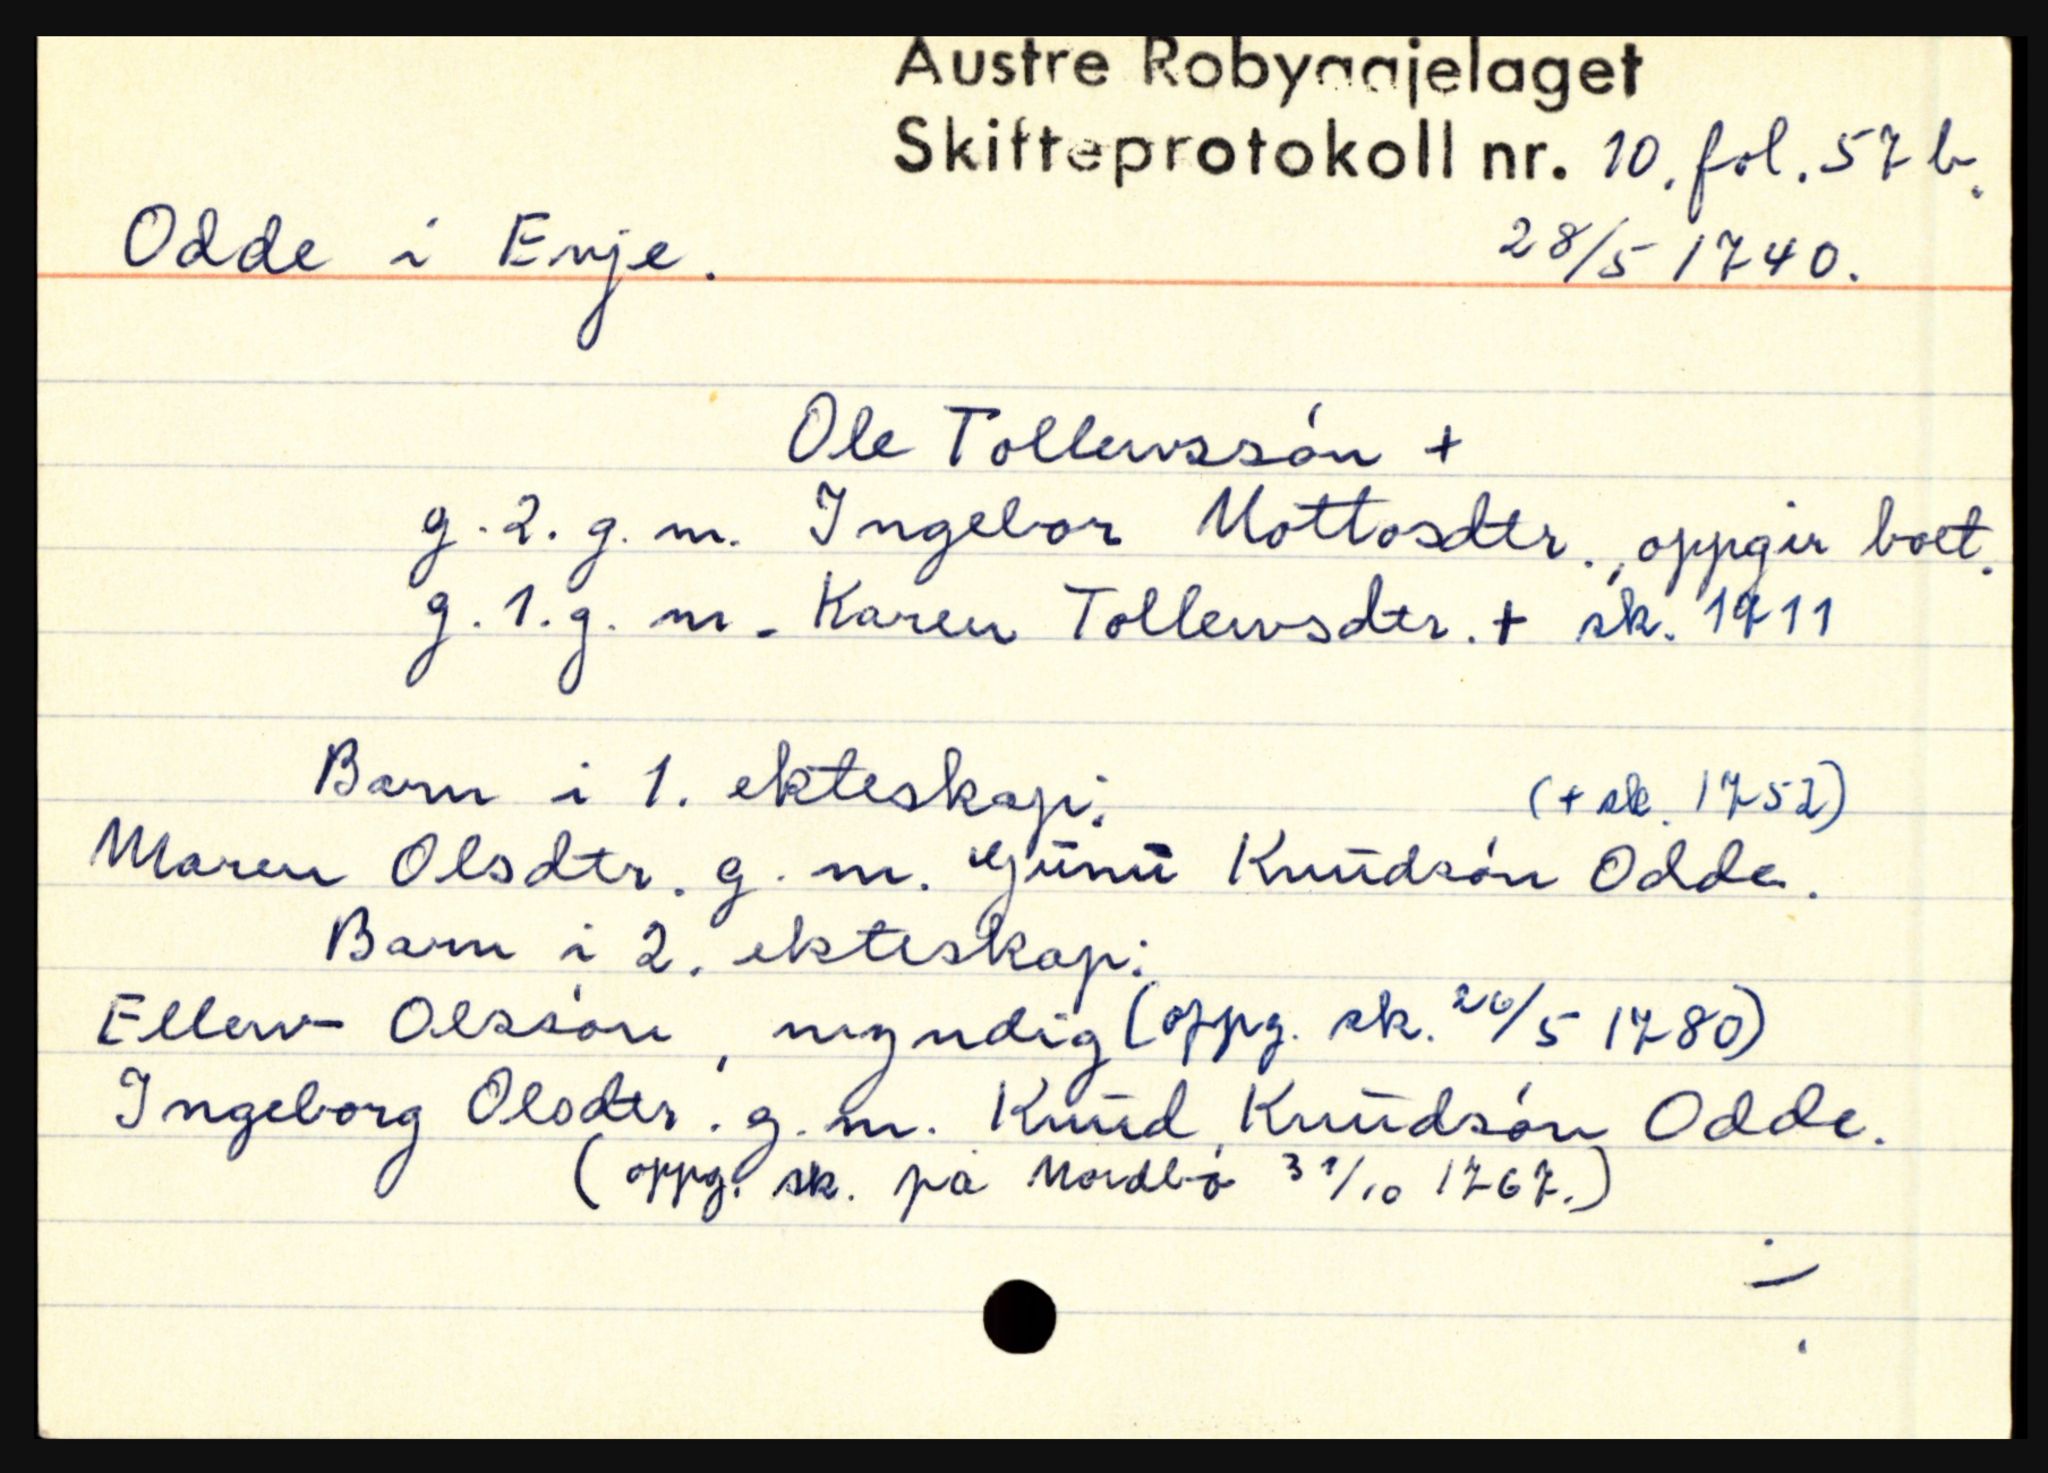 Austre Robyggjelaget
Skifteprotokoll nr. 10. fol. 57 b.
Odde i Evje. 28/5 1740.
Ole Tollevssón +
g. 2. g. m. Ingebor Mottosdtr., oppgir boet.
g. 1. g. m. Karen Tollevsdtr. + sk. 1711
Barn i 1. ekteskap: (+ sk. 1752)
Maren Olsdtr. g. m. Gūnū Knūdsón Odde.
Barn i 2. ekteskap:
Ellev Olssón, myndig (oppg. sk. 26/5 1780)
Ingeborg Olsdtr. g. m. Knūd Knūdsón Odde.
(oppg. sk. på Nordbó 31/10 1767.)